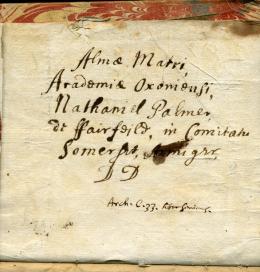 Almæ Matri,
Academiæ Oxoniensi,
Nathaniel Palmer,
de ffairfeild, in Comitatu
Somerset, Armigr,
DD
Arch. C. 33.